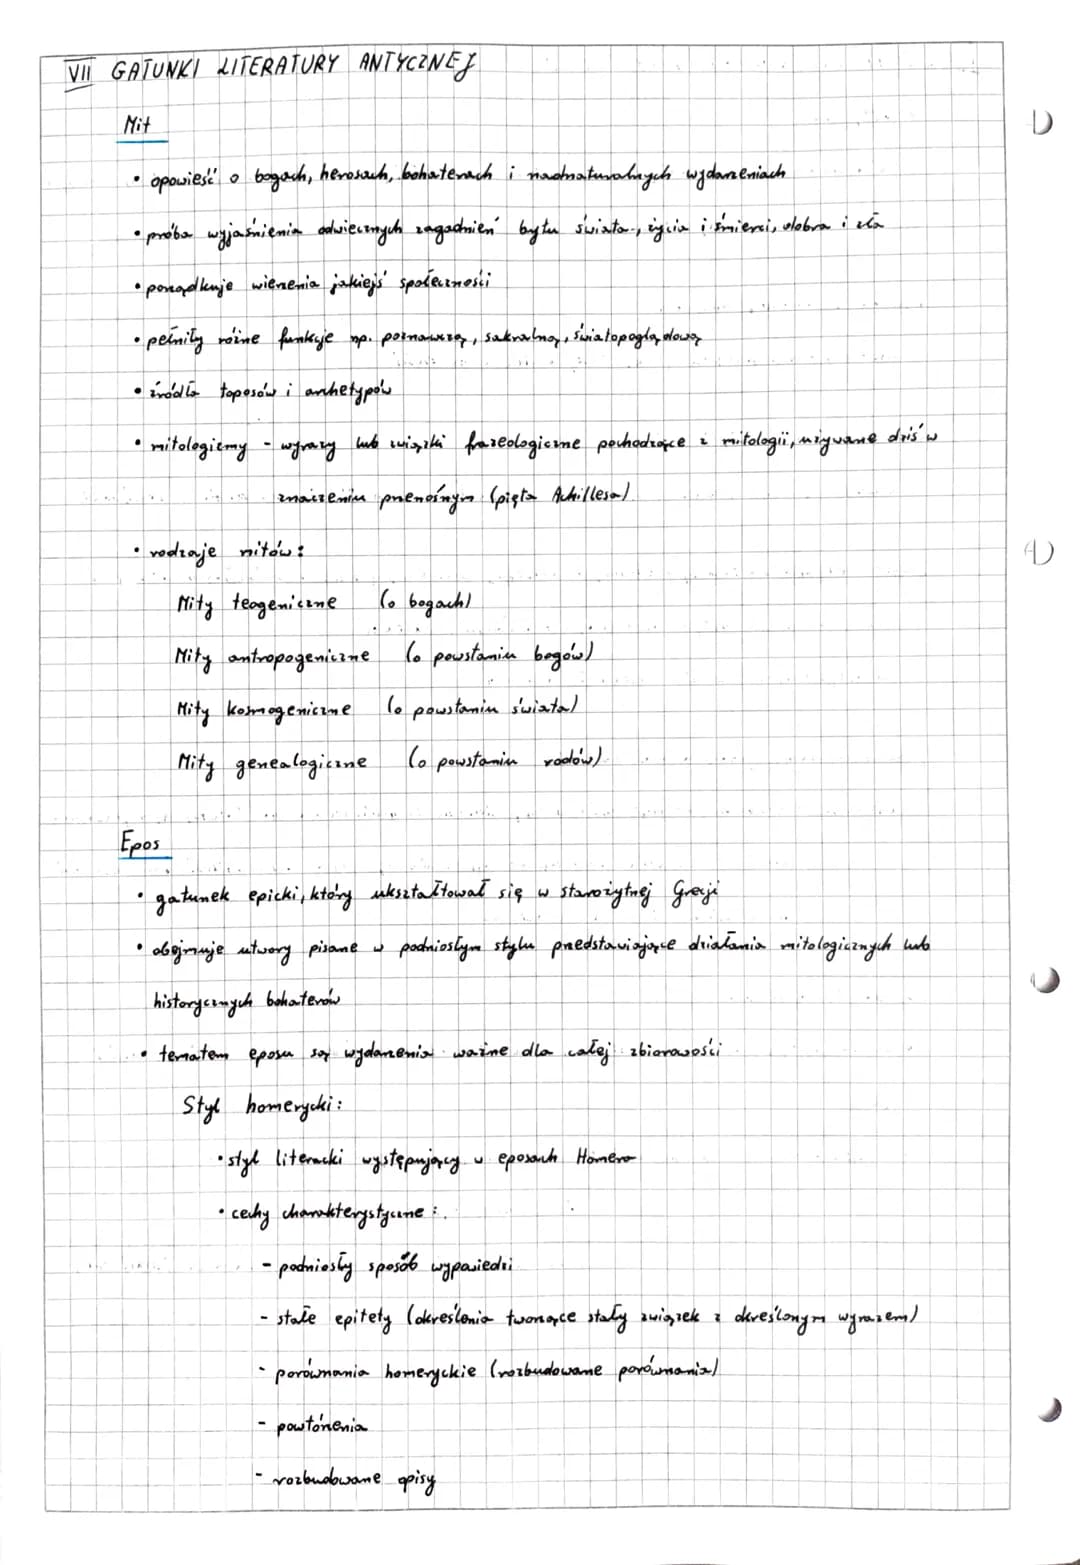 VII GATUNKI LITERATURY ANTYCZNEJ
Mit
• opowieść o bogach, herosach, bohaterach i nadnaturalnych wydarzeniach
• próba wyjaśnienia odwiecznych zagadnień bytu świata, życia i śmierci, dobra i zła
• porządkuje wierzenia jakiejś społeczności
• pełniły różne funkcje np. poznawczą, sakralną, światopoglądową
• źródło toposów i archetypów
• mitologizmy - wyrazy lub związki frazeologiczne pochodzące z mitologii, używane dziś w
znaczeniu przenośnym (pięta Achillesa)
• rodzaje mitów:
Mity teogeniczne (o bogach)
Mity antropogeniczne (o powstaniu bogów)
Mity kosmogeniczne (o powstaniu świata)
Mity genealogiczne (o powstaniu rodów)
Epos
• gatunek epicki, który ukształtował się w starożytnej Grecji
• obejmuje utwory pisane w podniosłym stylu przedstawiające działania mitologicznych lub
historycznych bohaterów
• tematem eposu są wydarzenia ważne dla całej zbiorowości
Styl homerycki:
• styl literacki występujący w eposach Homera
• cechy charakterystyczne:
- podniosły sposób wypowiedzi
- stałe epitety (określenia tworzące stały związek z określonym wyrazem)
- porównania homeryckie (rozbudowane porównania)
- powtórzenia
- rozbudowane opisy